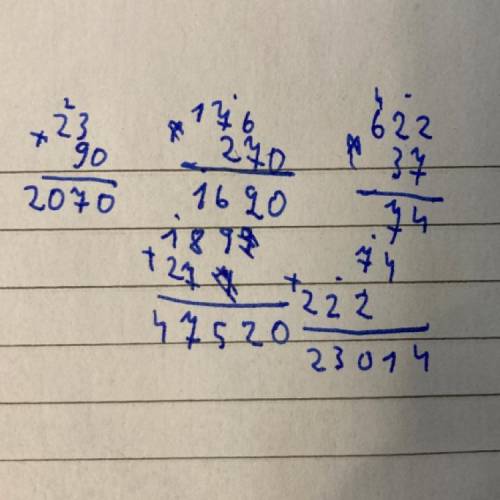 23
× 90
2070
176
× 270
1620
189
+ 27
47520
622
× 37
74
74
+ 222
23014